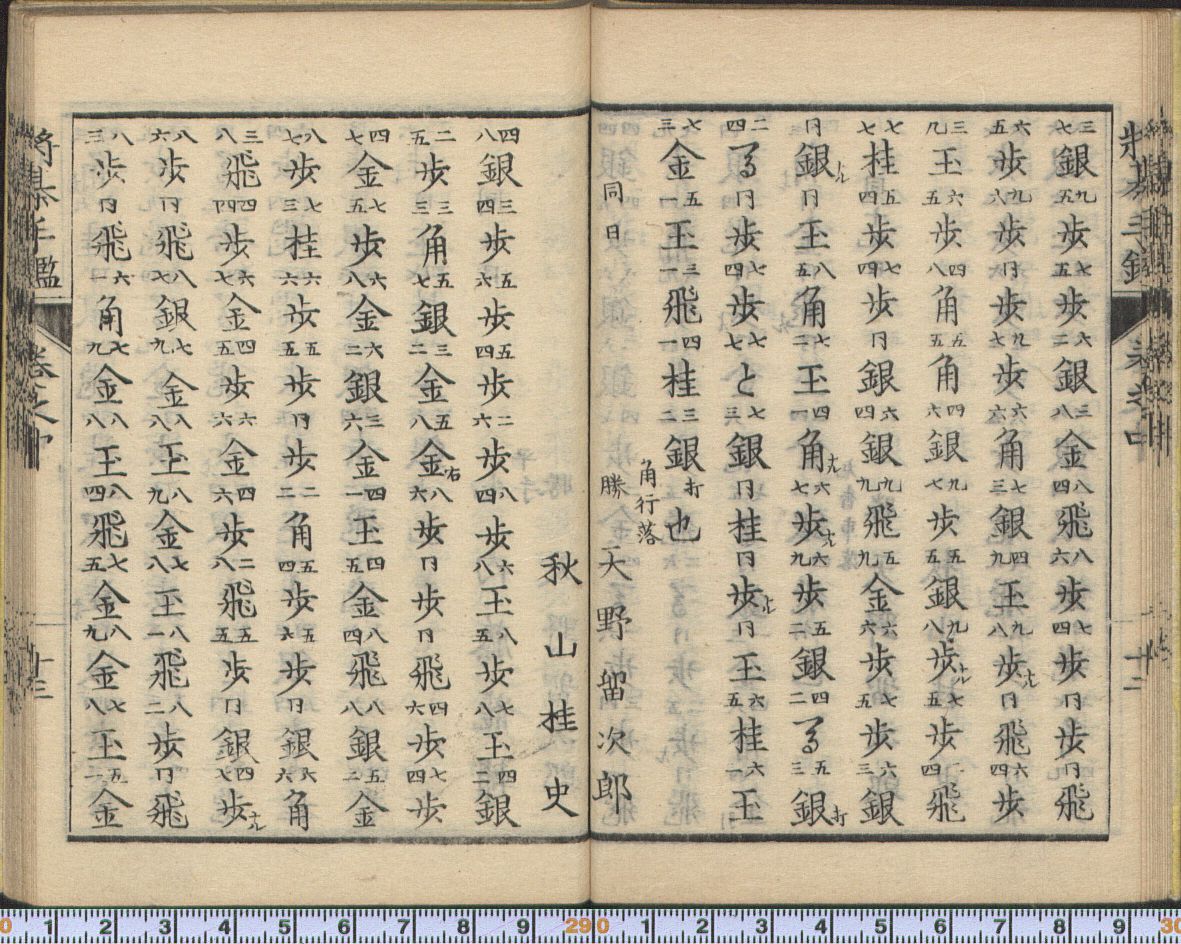 巻之中 十二
三七銀九五歩七五歩六二銀三八金八四飛八六歩七四歩同歩同飛
六五歩九六歩同歩九七歩六六角七三銀四九王九八歩ナル同飛六四歩
三九王六五歩四八角五五角四六角九七歩五五銀九八歩ナル七五歩四飛
七七桂五四歩七四歩同銀六四銀九九飛五九金六六歩七五歩六三銀
同銀ナル同王八五角七二王四一角ナル六七歩ナル六九歩五二銀四二馬五三銀打
二四馬同歩七四歩七七と七三銀同桂同歩ナル同王六五桂六一王
七三金五一王三一飛四一桂三二銀打也
角行落
同日 勝 天野留次郎
秋山桂史
四八銀三四歩五六歩五四歩二六歩八四歩六八王八五歩七八王四二銀
二五歩三三角五七銀三二金五八金右八六歩同歩同飛四六歩七四歩
四七金七五歩六八金六二銀三六金四一王四五金八四飛八八銀五二金
八七歩七三桂六六歩五五歩同歩二二角五四歩五六歩同銀六六角
三八飛四四歩六七金四五歩六六金四六歩二八飛五五歩同銀四七歩ナル
八六歩同飛八七銀七九金八八王八九金七八王八一飛八二歩同飛
八三歩同飛六一角七九金八八王八四飛七五金八九金七八金五二玉金
将棊手鑑 巻之中 十三